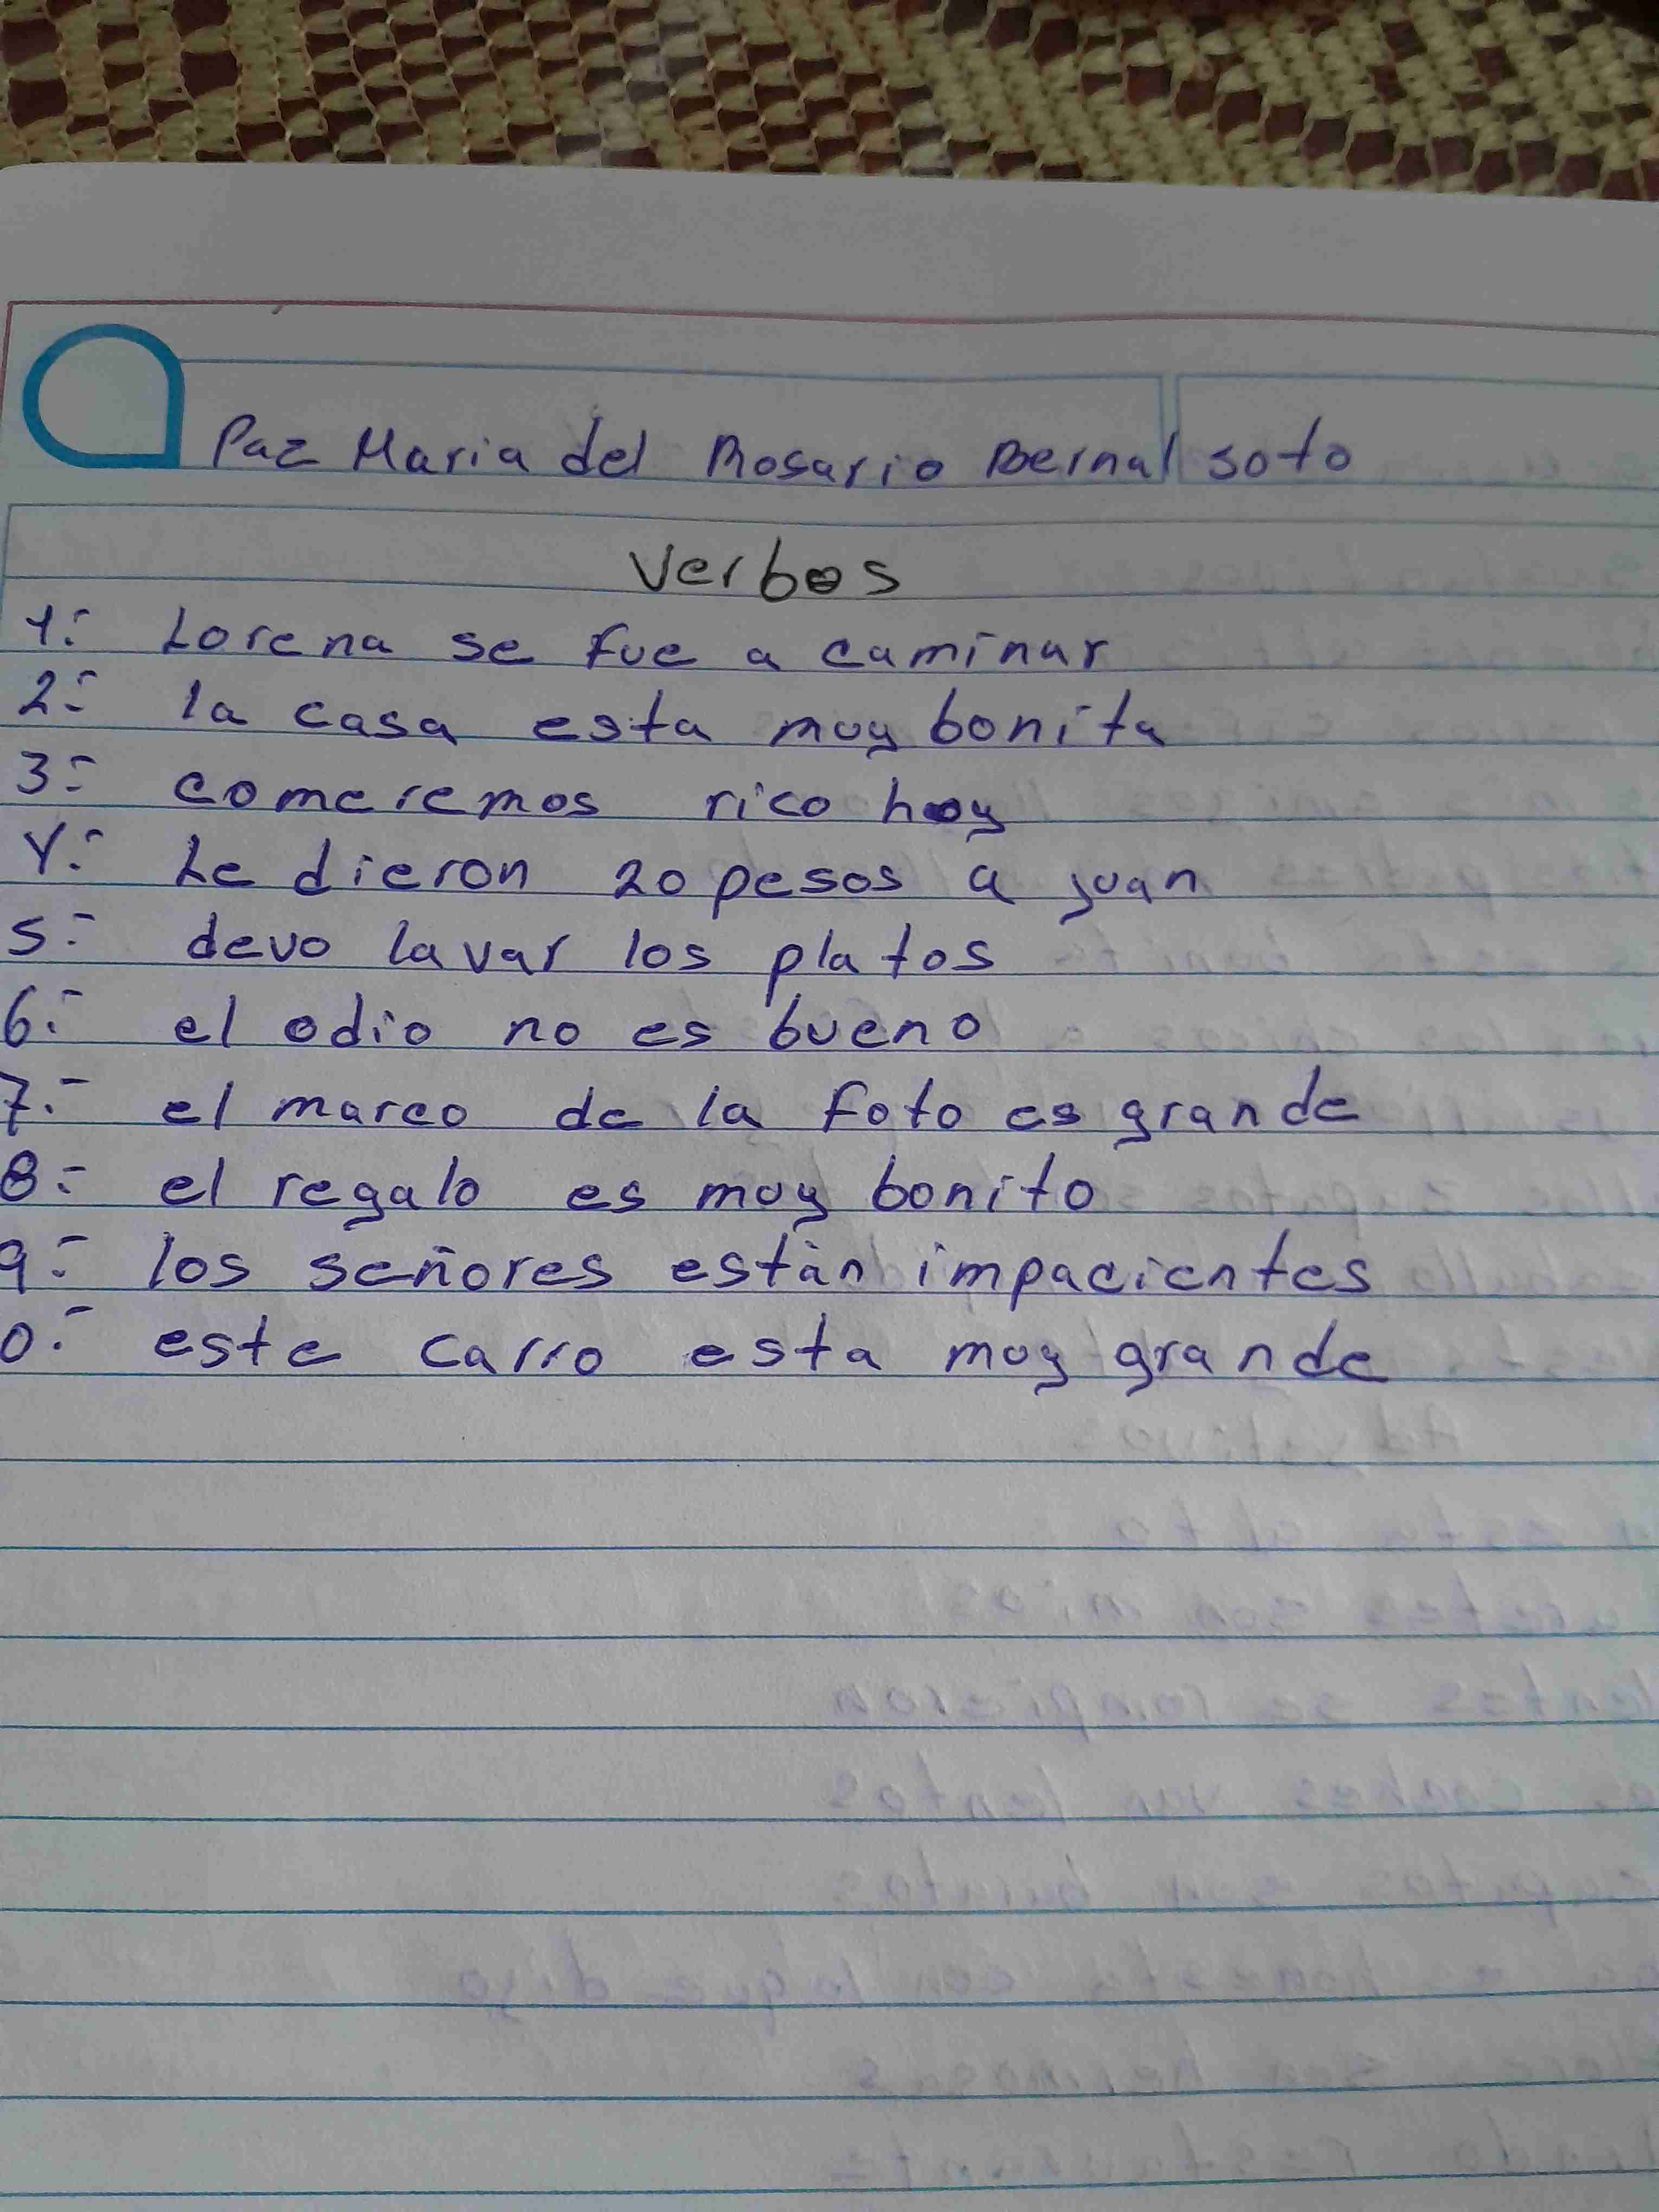 Paz Maria del Rosario Bernal soto
Verbos
1.- Lorena se fue a caminar
2.- la casa esta muy bonita
3.- comeremos rico hoy
4.- Le dieron 20 pesos a juan
5.- devo lavar los platos
6.- el odio no es bueno
7.- el marco de la foto es grande
8.- el regalo es muy bonito
9.- los señores están impacientes
0.- este carro esta muy grande